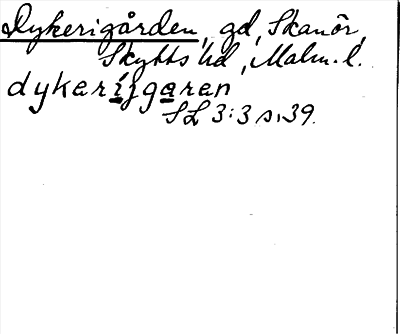 Dykerigården, gd, Skanör,
Skytts hd, Malm. l.
dykeri̱jga̱ren
SL 3:3 s. 39.